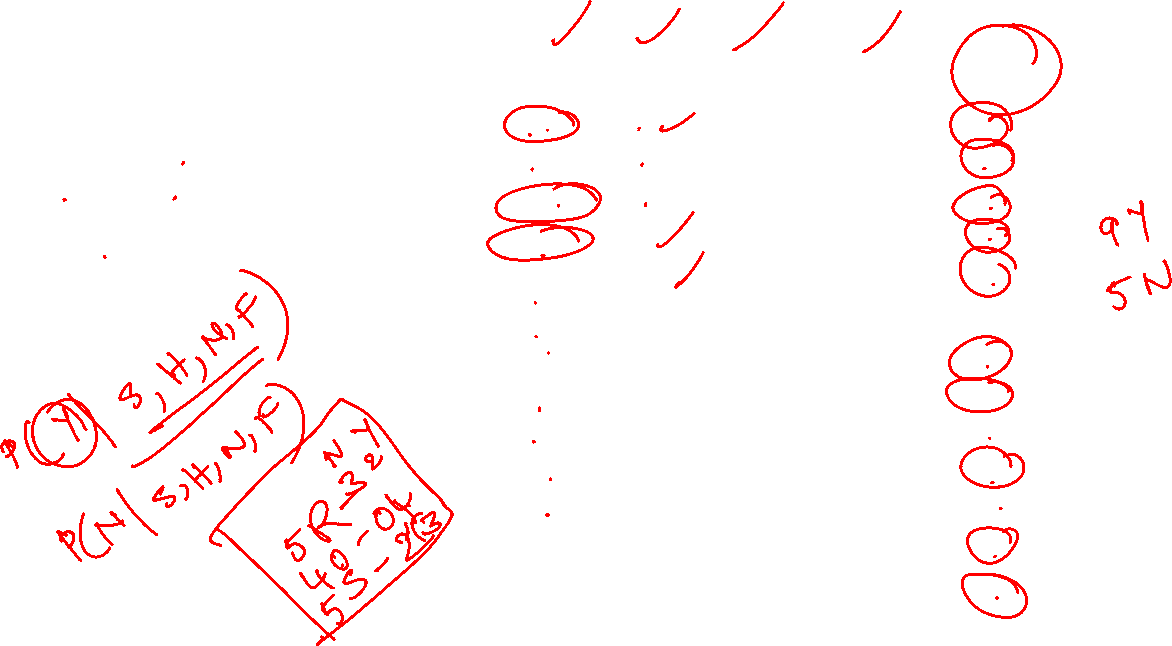 9Y
5N
P(Y) S, H, N, F)
P(N | S, H, N, F)
N Y
5R 3 2
40 - 04
5S - 2(3